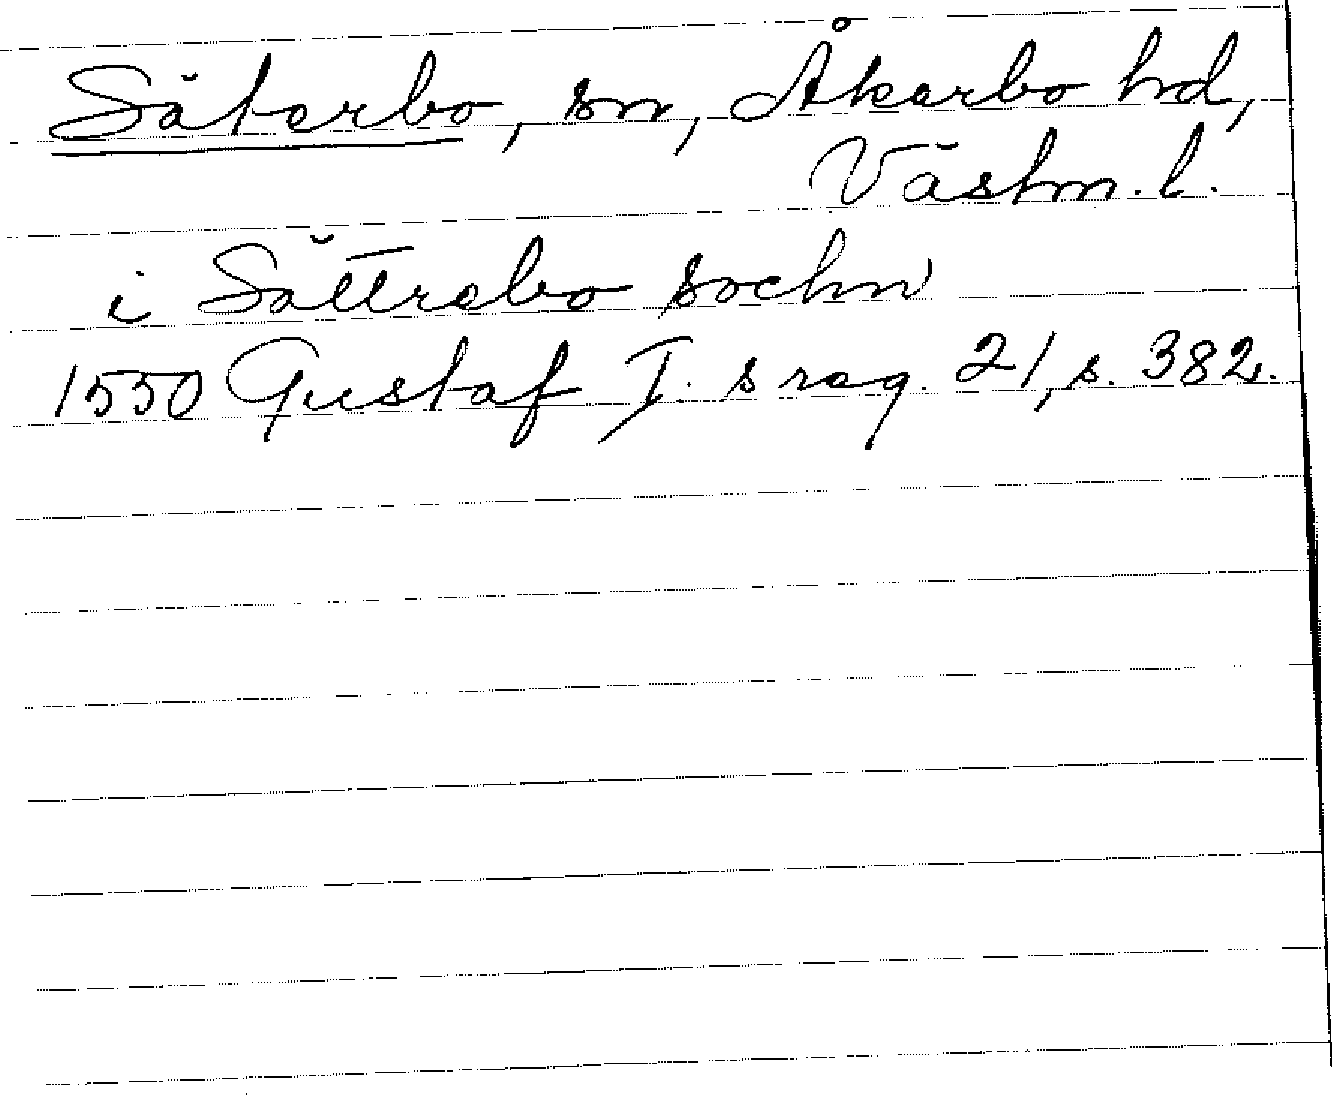 Säterbo, sn, Åkerbo hd,
Västm. l.
i Sättrebo sochn
1550 Gustaf I. s reg. 21, s. 382.